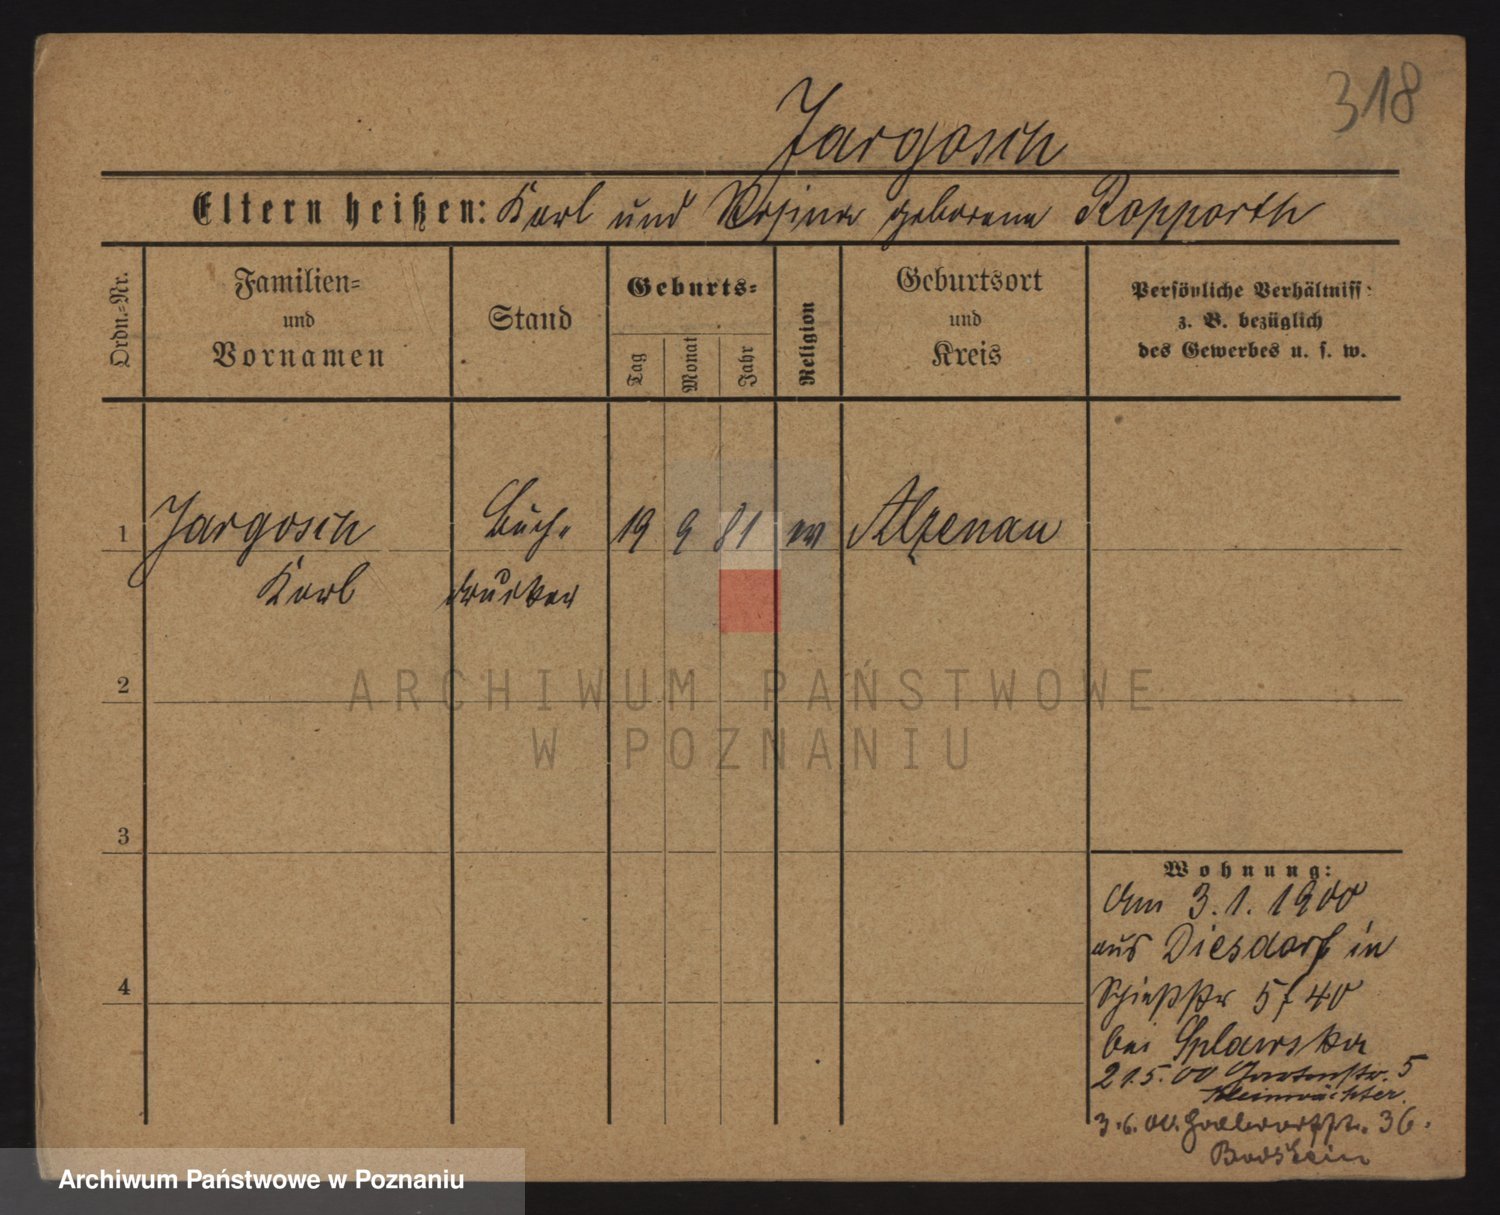 318
Jargosch
Eltern heißen: Karl und Rosina geborene Ropporth
Ordn.-Nr.
Familien-
und
Vornamen
Stand
Geburts-
Tag
Monat
Jahr
Religion
Geburtsort
und
Kreis
Persönliche Verhältniss
z. B. bezüglich
des Gewerbes u. s. w.
1 Jargosch Buch- 19 9 81 ev Alzenau
Karl drucker
2
3
4
Wohnung:
Am 3.1.1900
aus Diesdorf in
Schießstr 5 f 40
bei Splawska
21.5.00 Gartenstr. 5
Kleinwächter.
3.6.00. 36.
ARCHIWUM PAŃSTWOWE
W POZNANIU
Archiwum Państwowe w Poznaniu